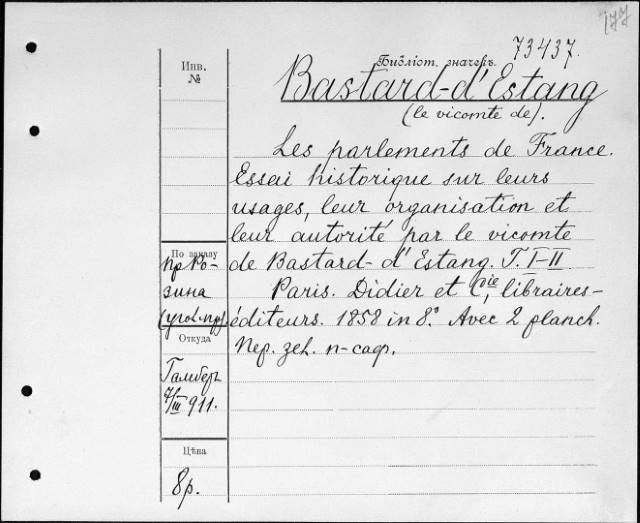 177
73437.
Инв.
№
Библіот. значекъ.
Bastard-d'Estang
(le vicomte de).
Les parlements de France.
Essai historique sur leurs
usages, leur organisation et
leur autorité par le vicomte
de Bastard-d'Estang. T. I-II
Paris. Didier et Cie, libraires-
éditeurs. 1858 in 8°. Avec 2 planch.
Пер. зел. п-сафр.
По заказу
пр Ро-
зина
(угол. пр).
Откуда
7/III 911.
Цѣна
8р.